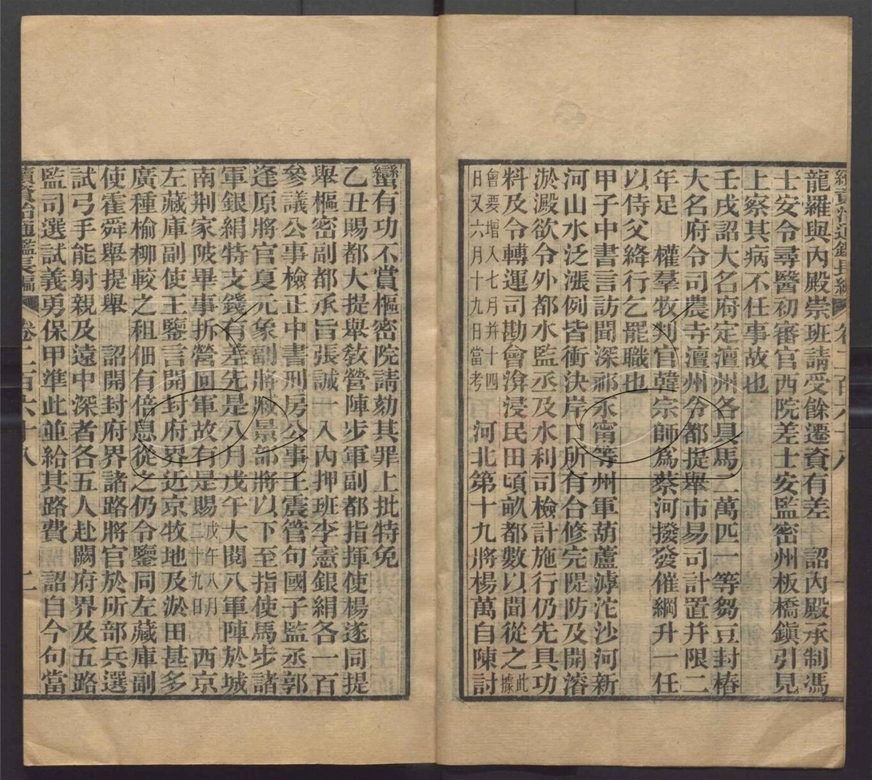 龍羅與內殿崇班請受餘遷資有差　詔內殿承制馮
士安令尋醫初審官西院差士安監密州板橋鎮引見
上察其病不任事故也
壬戌詔大名府定澶州各具馬二萬匹一等芻豆封樁
大名府令司農寺澶州令都提舉市易司計置并限二
年足　權羣牧判官韓宗師為蔡河撥發催綱升一任
以侍父絳行乞罷職也
甲子中書言訪聞深祁永甯等州軍葫蘆滹沱沙河新
河山水泛漲例皆衝決岸口所有合修完隄防及開濬
淤澱欲令外都水監丞及水利司檢計施行仍先具功
料及令轉運司勘會渰浸民田頃畝都數以聞從之據此
會要增入七月并十四
日又六月十九日當考　河北第十九將楊萬自陳討
蠻有功不賞樞密院請劾其罪上批特免
乙丑賜都大提舉教營陣步軍副都指揮使楊遂同提
舉樞密副都承旨張誠一入內押班李憲銀絹各一百
參議公事檢正中書刑房公事王震管句國子監丞郭
逢原將官夏元象副將臧景部將以下至指使馬步諸
軍銀絹特支錢有差先是八月戊午大閱八軍陣於城
南荆家陂畢事拆營回軍故有是賜戊午八月二十九日　西京
左藏庫副使王鑒言開封府界近京牧地及淤田甚多
廣種榆柳較之租佃有倍息從之仍令鑒同左藏庫副
使霍舜舉提舉　詔開封府界諸路將官於所部兵選
試弓手能射親及遠中深者各五人赴闕府界及五路
監司選試義勇保甲準此並給其路費　詔自今句當
續資治通鑑長編　卷二百六十八　二